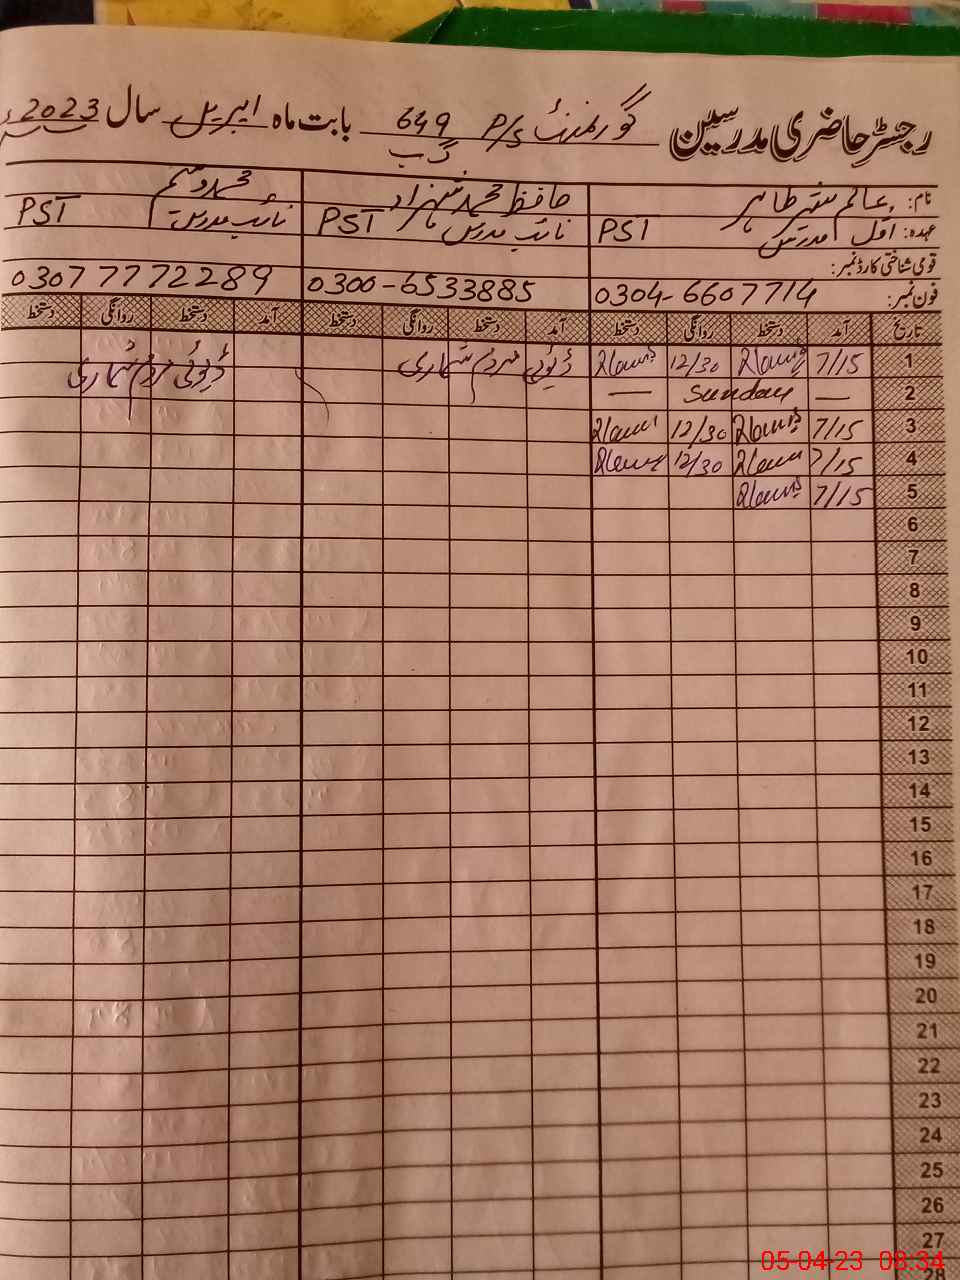 رجسٹر حاضری مدرسین گورنمنٹ P/S 649 گ ب بابت ماہ اپریل سال 2023ء
نام: عالم شیر طاہر حافظ محمد شہزاد محمد وسیم
عہدہ: اول مدرس PST نائب مدرس PST نائب مدرس PST
قومی شناختی کارڈ نمبر:
فون نمبر: 0304-6607714 0300-6533885 0307 7772289
تاریخ آمد دستخط روانگی دستخط آمد دستخط روانگی دستخط آمد دستخط روانگی دستخط
1 7/15 12/30 ڈیوٹی مردم شماری ڈیوٹی مردم شماری
2 — Sunday —
3 7/15 12/30
4 7/15 12/30
5 7/15
6
7
8
9
10
11
12
13
14
15
16
17
18
19
20
21
22
23
24
25
26
27
28
05-04-23 08:34